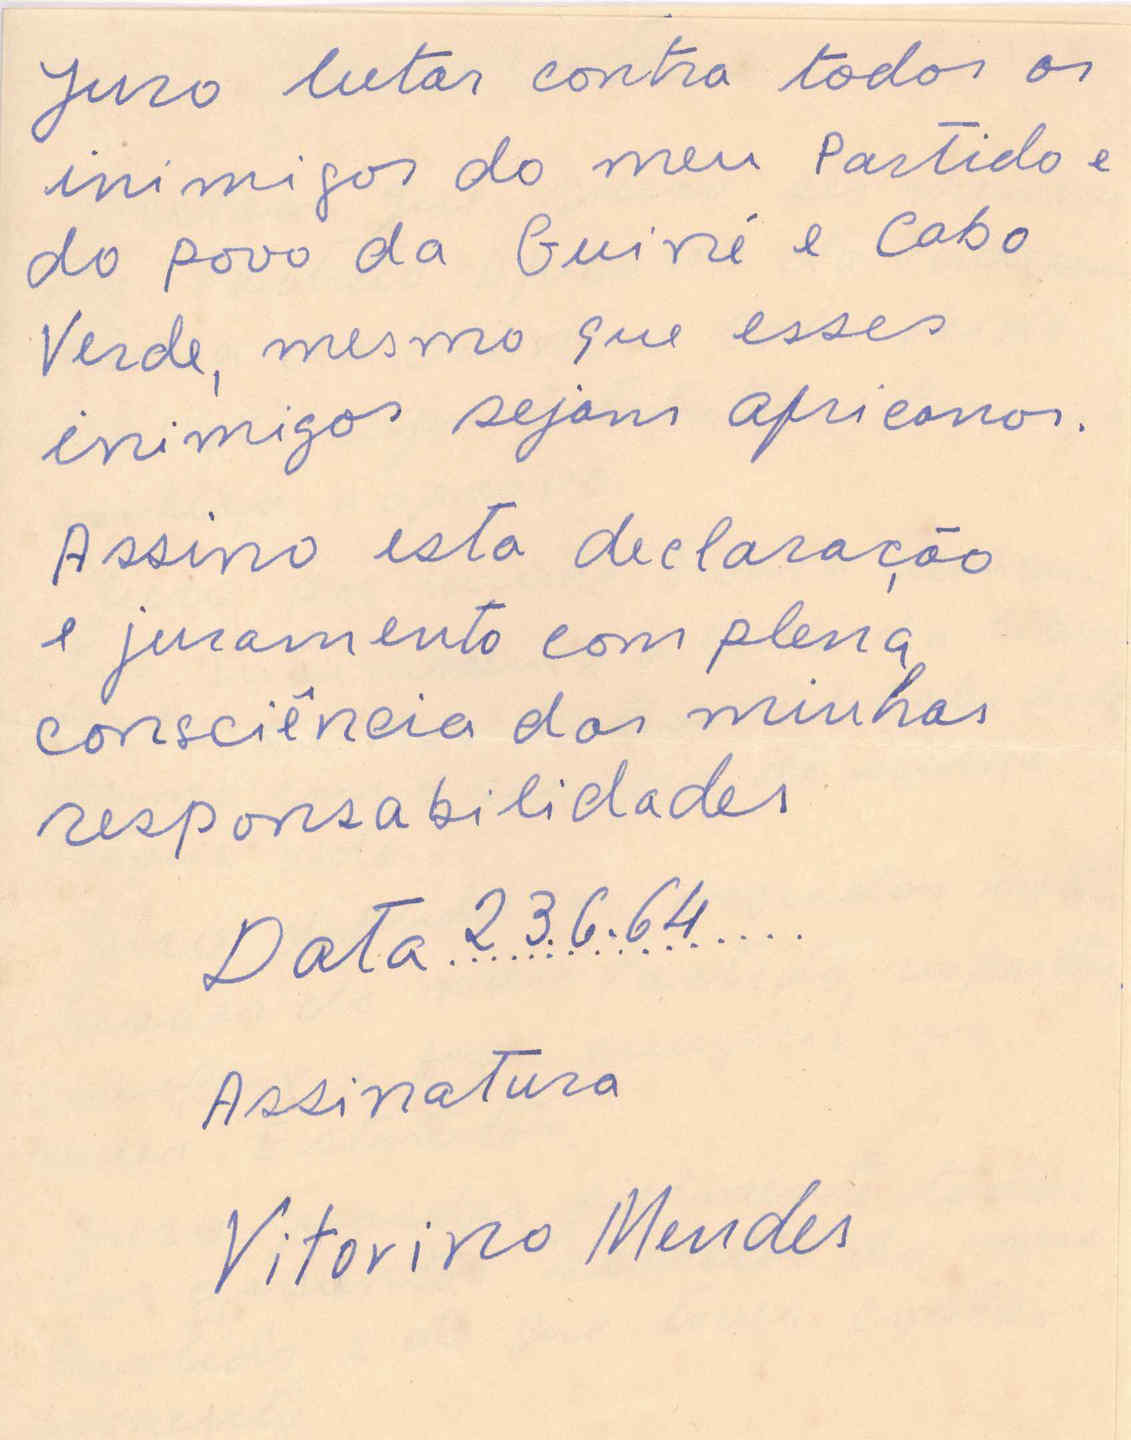 Juro lutar contra todos os
inimigos do meu Partido e
do povo da Guiné e Cabo
Verde, mesmo que esses
inimigos sejam africanos.
Assino esta declaração
e juramento com plena
consciência das minhas
responsabilidades
Data 23.6.64
Assinatura
Vitorino Mendes